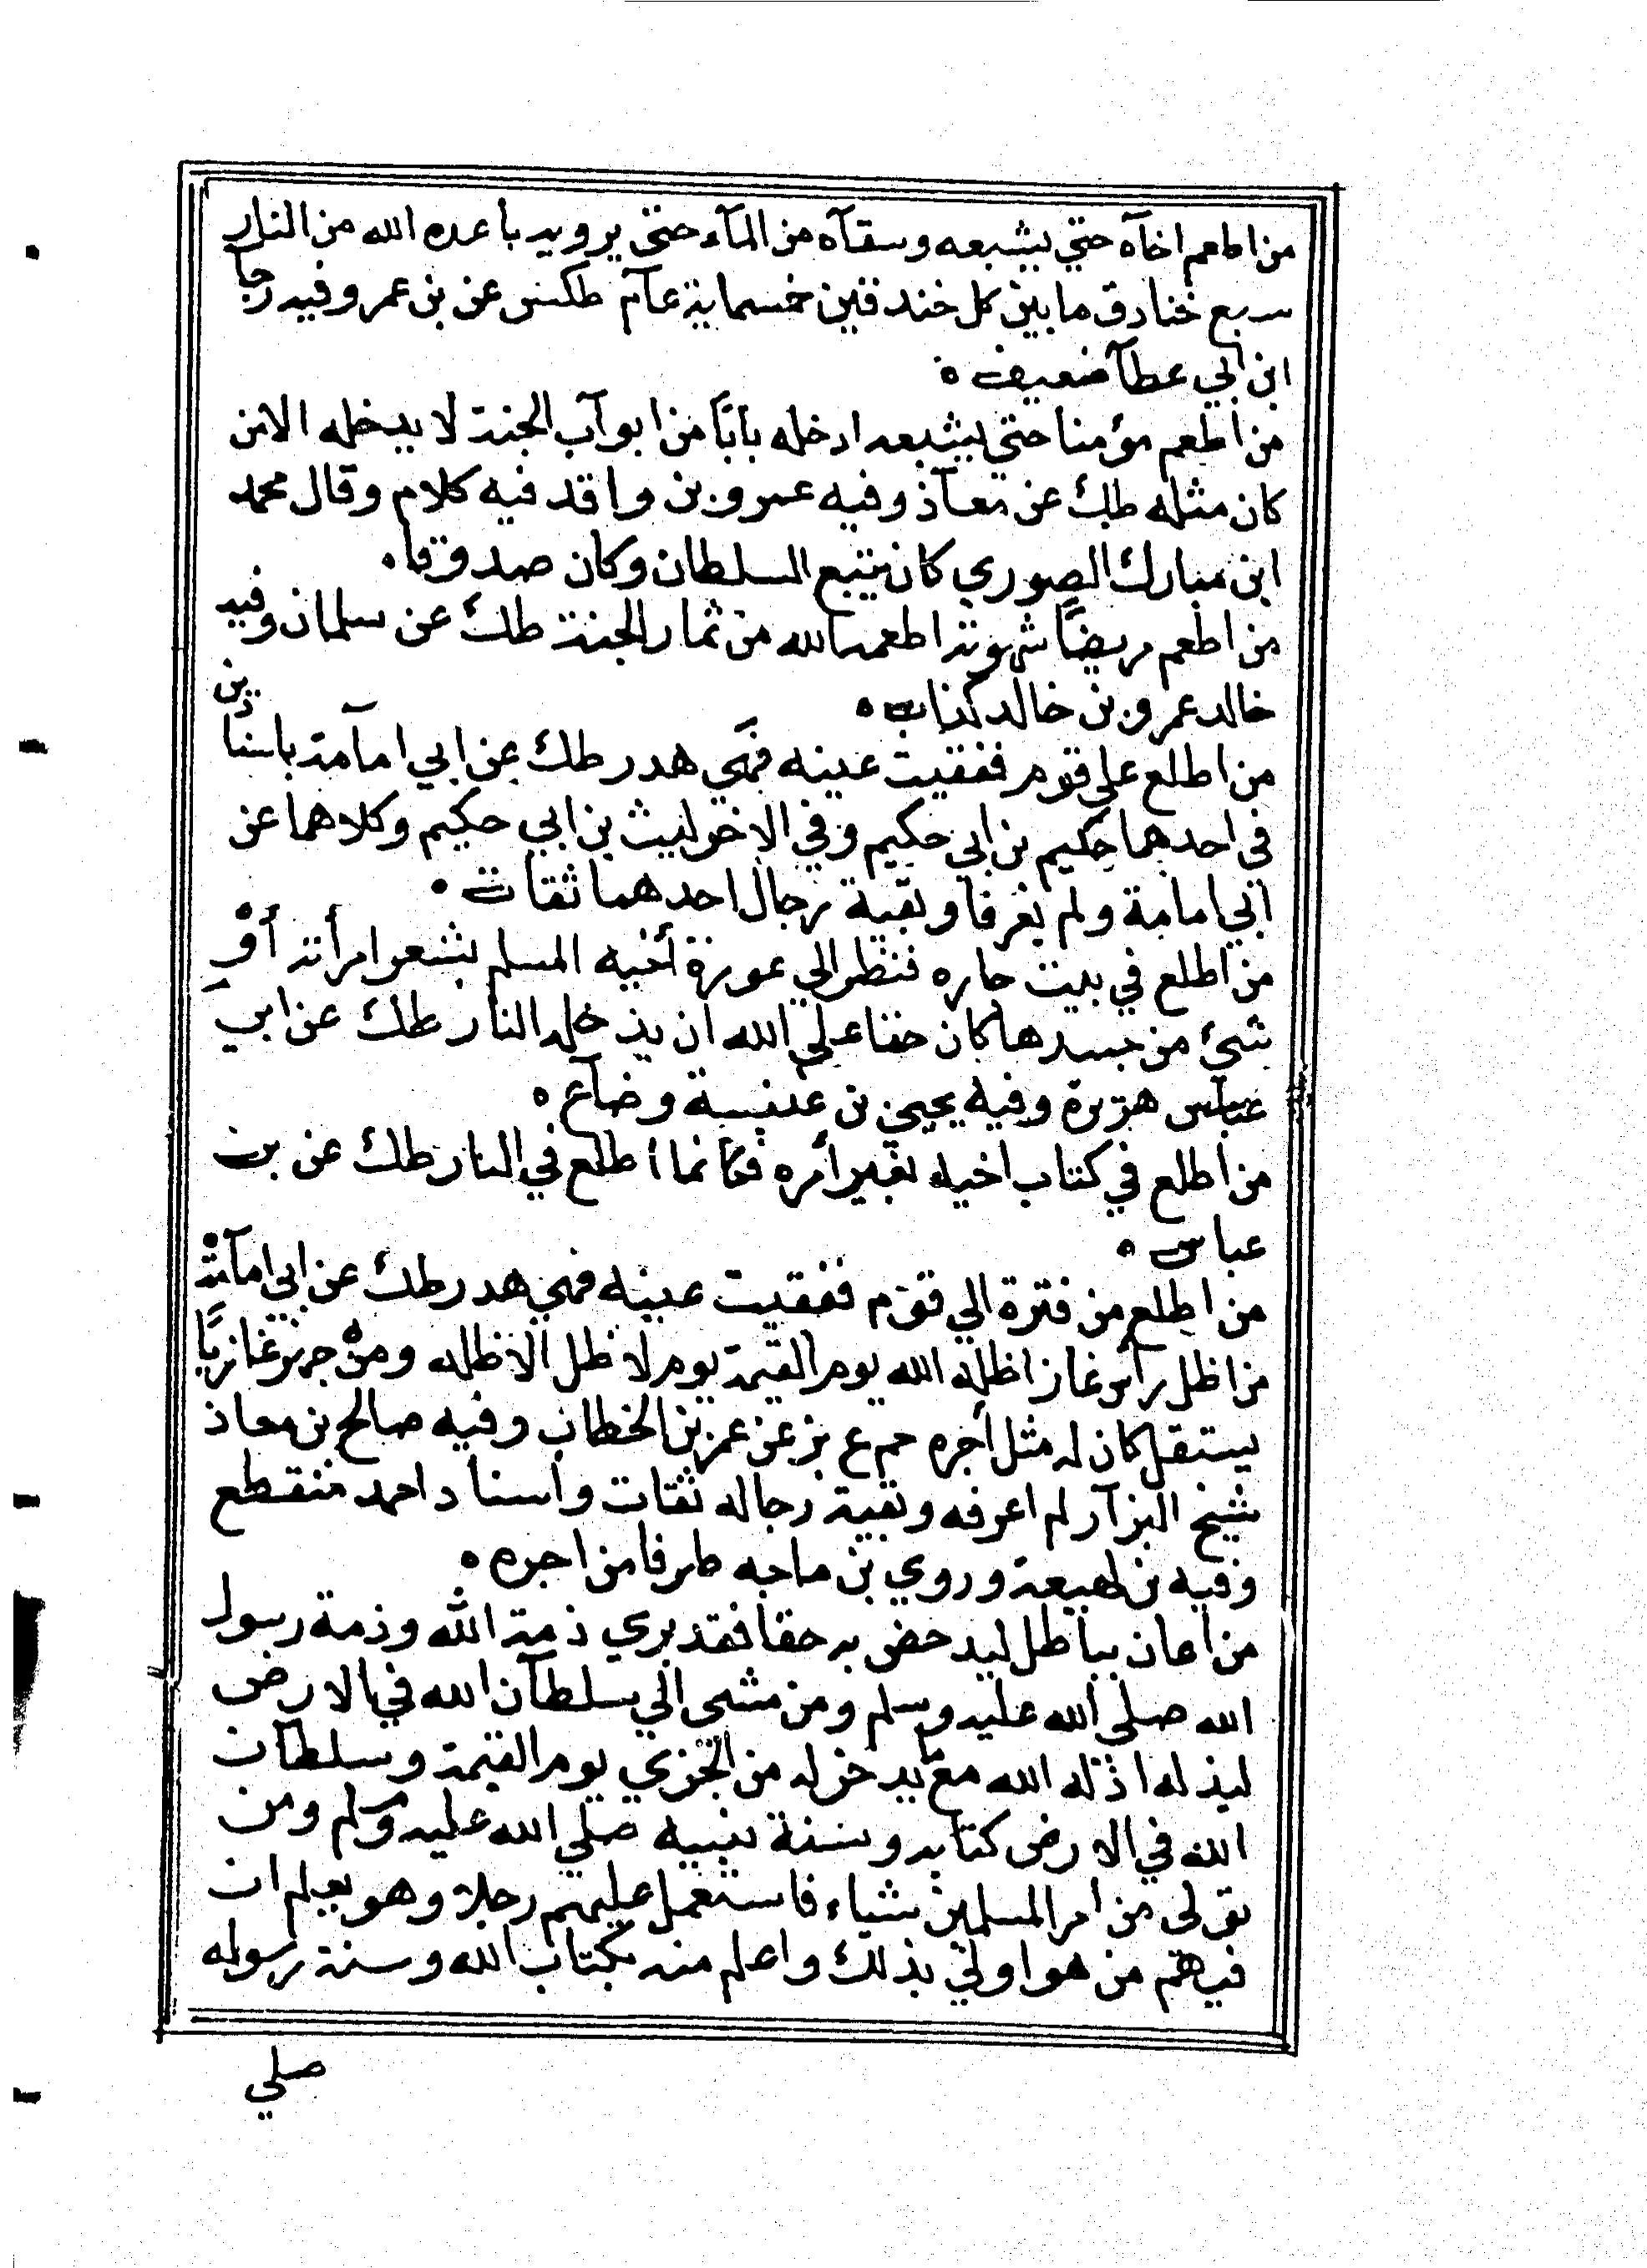 من اطعم اخآه حتي يشبعه وسقآه من المآء حتى يرويه باعده الله من النار
سبع خنادق ما بين كل خندقين خمسماية عآم طكس عن بن عمرو وفيه رجآ
ابن ابي عطآ ضعيف ه
من اطعم مؤمنا حتي يشبعه ادخله بابًا من ابوآب الجنة لا يدخله الا من
كان مثله طبك عن معآذ وفيه عمرو بن واقد فيه كلام وقال محمد
ابن مبارك الصوري كان يتبع السلطان وكان صدوقا ه
من اطعم مريضًا شهوته اطعمه الله من ثمار الجنة طك عن سلمان وفيه
خالد عمرو بن خالد كذاب ه
من اطلع علي قوم ففقيت عينه فهي هدر طك عن ابي امآمة باسنادين
في احدهما حكيم بن ابي حكيم وفي الاخر ليث بن ابي حكيم وكلاهما عن
ابي امامة ولم يعرفا وبقية رجال احدهما ثقات ه
من اطلع في بيت جاره فنظر الي عورة أخيه المسلم بشعر امرأته أو
شئ من جسدها كان حقا علي الله ان يدخله النار طك عن ابي
عباس هريرة وفيه يحيي بن عنبسة وضآع ه
من اطلع في كتاب اخيه بغير أمره فكأنما اطلع في النار طك عن بن
عباس ه
من اطلع من فترة الي قوم ففقيت عينه فهي هدر طك عن ابي امآمة ه
من اظل رأس غاز اظله الله يوم القيمة يوم لا ظل الا ظله ومن جهز غازيًا
يستقل كان له مثل أجره حم ع بز عن عمر بن الخطاب وفيه صالح بن معاذ
شيخ البزآر لم اعرفه وبقية رجاله ثقات واسناد احمد منقطع
وفيه بن لهيعة وروي بن ماجه طرفا من اجره ه
من اعان بباطل ليدحض به حقا فقد بري ذمة الله وذمة رسول
الله صلى الله عليه وسلم ومن مشى الي سلطآن الله في الارض
ليذله اذله الله مع يدخر له من الخزي يوم القيمة وسلطان
الله في الارض كتابه وسنة نبيه صلي الله عليه وسلم ومن
تولى من امر المسلمين شياء فاستعمل عليهم رجلا وهو يعلم ان
فيهم من هو اولي بذلك واعلم منه بكتاب الله وسنة رسوله
صلي